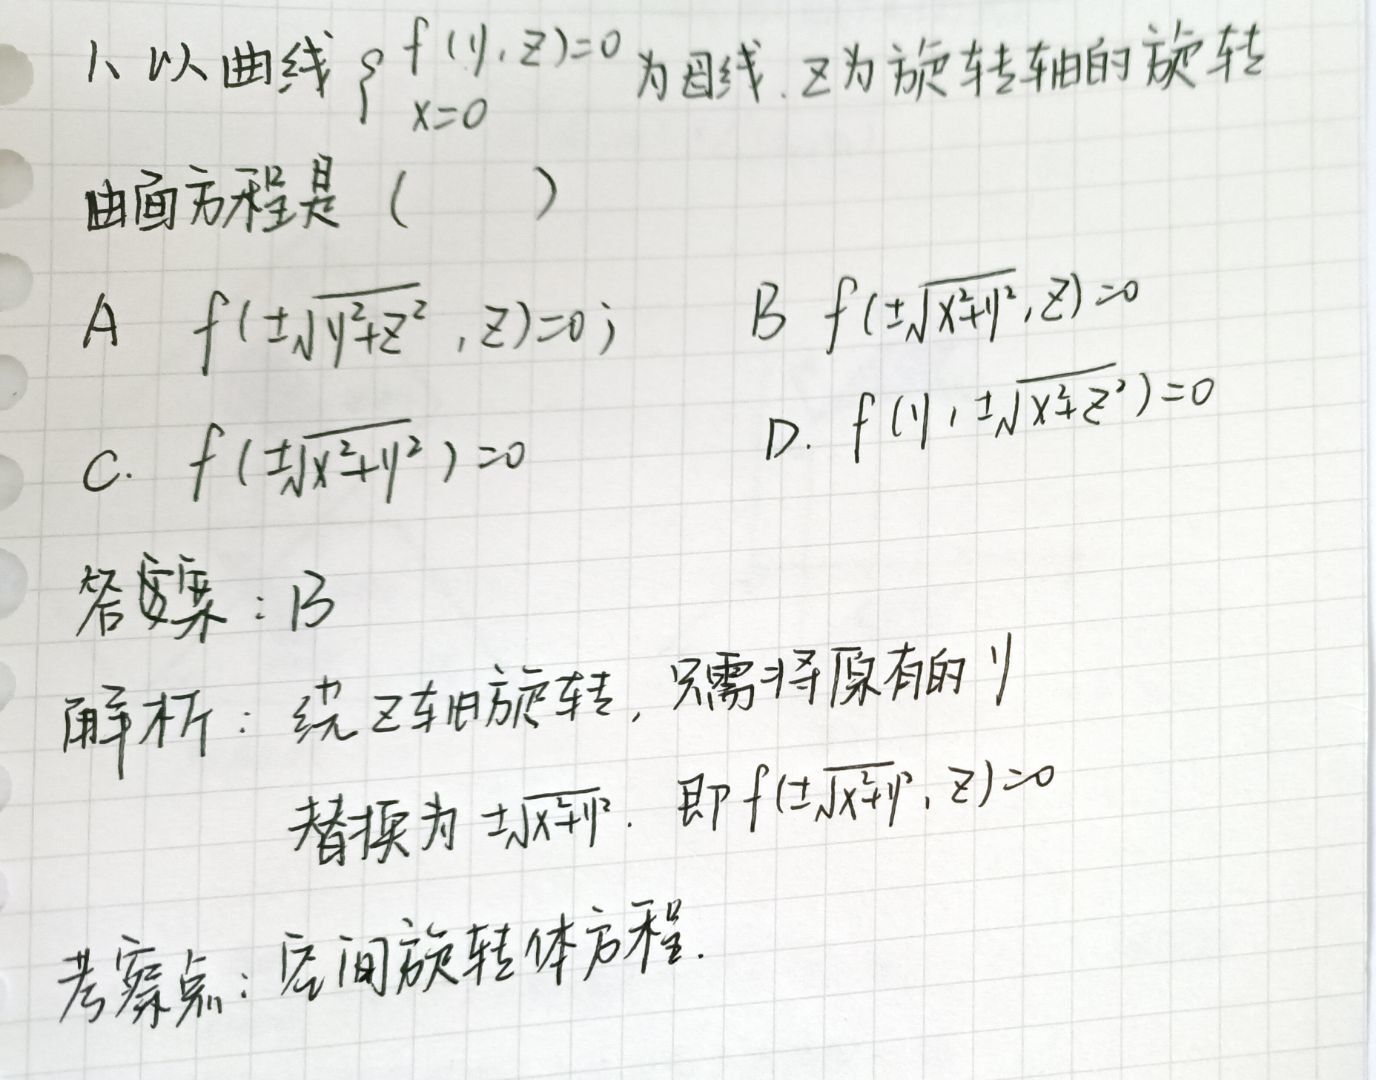 1、以曲线{f(y,z)=0 x=0 为母线.z为旋转轴的旋转
曲面方程是( )
A f(±√y²+z²,z)=0; B f(±√x²+y²,z)=0
C. f(±√x²+y²)=0 D. f(y,±√x²+z²)=0
答案:B
解析:绕z轴旋转,只需将原有的y
替换为±√x²+y². 即f(±√x²+y²,z)=0
考察点:空间旋转体方程.